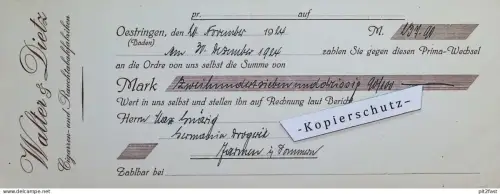 pr. auf
Oestringen, den 26. November 1924 M. 237.90
(Baden)
Am 30. Dezember 1924 zahlen Sie gegen diesen Prima-Wechsel
an die Ordre von uns selbst die Summe von
Mark Zweihundertsiebenunddreissig 90/100
Wert in uns selbst und stellen ihn auf Rechnung laut Bericht
Herrn Max
Germania Drogerie
Barmen
Zahlbar bei
Walter & Dietz
Cigarren- und Rauchtabakfabriken
- Kopierschutz -